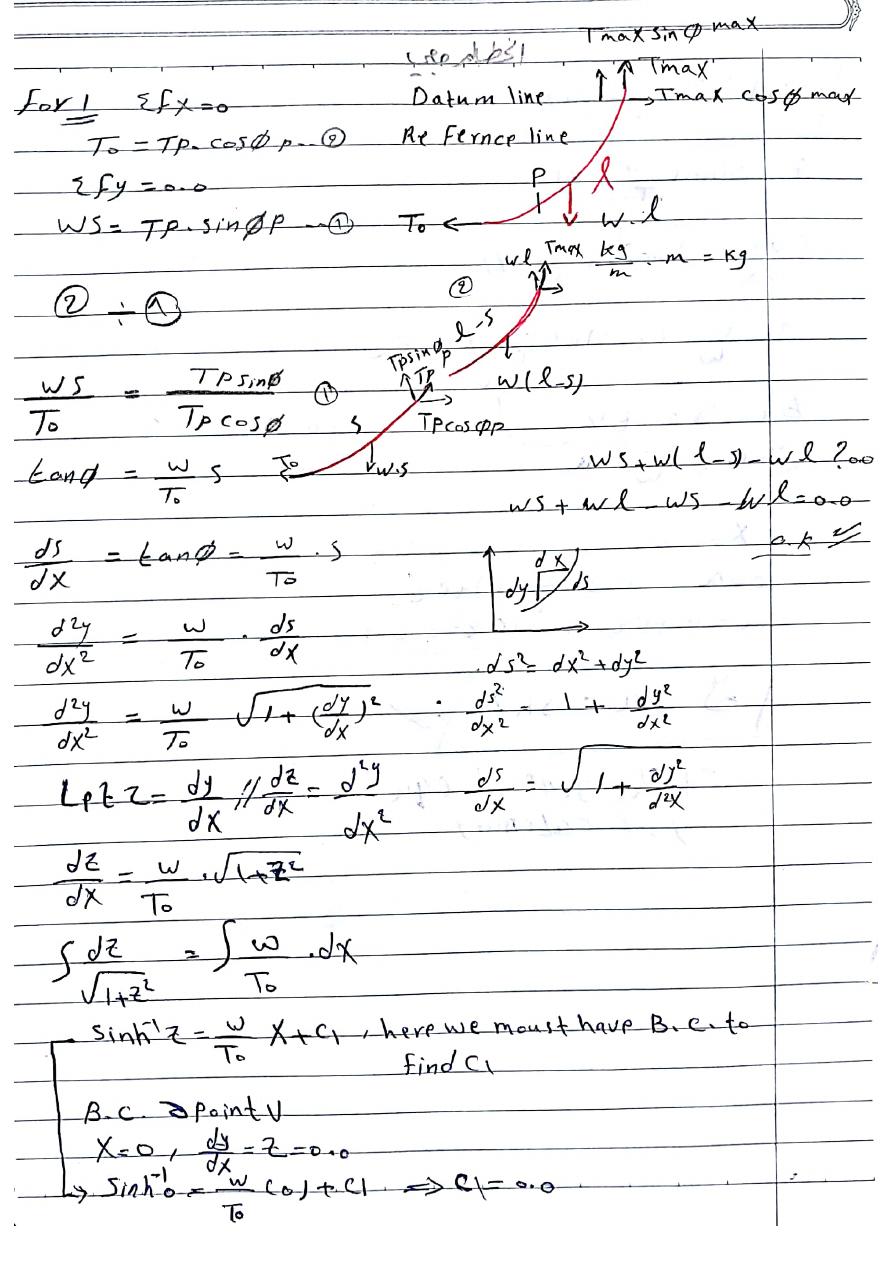 Tmax sin φ max
for 1 Σfx=0
Datum line
Tmax
Tmax cosφ max
To = Tp. cosφ p -- ②
Refernce line
Σfy = 0.0
P
l
WS = Tp. sinφp --- ①
To
w.l
② ÷ ①
②
wl Tmax kg/m . m = kg
l-s
ws/To = Tp sinφ/Tp cosφ
Tpsinφp
Tp
w(l-s)
①
s
Tpcosφp
tanφ = w/To s
To
w.s
ws+w(l-s)-wl ?00
ws+wl-ws-wl=0.0
o.k
ds/dx = tanφ = w/To . s
dx
dy
ds
d²y/dx² = w/To . ds/dx
ds²= dx²+dy²
d²y/dx² = w/To √1+(dy/dx)²
ds²/dx² = 1 + dy²/dx²
Let z = dy/dx // dz/dx = d²y/dx²
ds/dx = √1+ dy²/d²x
dz/dx = w/To . √1+z²
∫ dz/√1+z² = ∫ w/To .dx
sinh⁻¹z = w/To x+C1 , here we moust have B.c. to
find C1
B.c. @ Point V
x=0 , dy/dx = z = 0.0
sinh⁻¹0 = w/To (0)+C1 ⇒ C1= 0.0